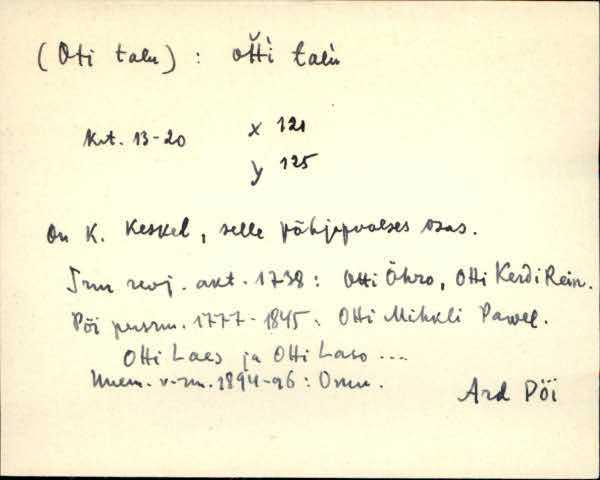 (Oti talu) : otti talu
Krt. 13-20 x 121
y 125
On K. Keskel, selle põhjapoolses osas.
revj. akt. 1738: Otti Öhro, Otti Kerdi Rein.
Pöi 1777-1845. Otti Mihkli Pawel.
Otti Laes ja Otti Laso ...
v-rm. 1894-96:
Ard Pöi